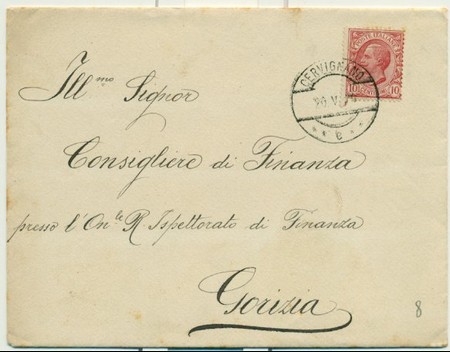 POSTE ITALIANE
10 CENT. 10
CERVIGNANO
e
Ill.mo Signor
Consigliere di Finanza
presso l'On.le R. Ispettorato di Finanza
Gorizia
8